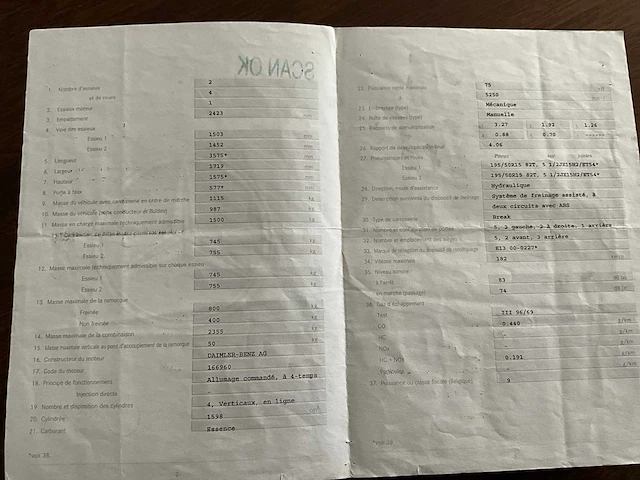 SCAN OK
1. Nombre d'essieux 2
et de roues 4
2. Essieux moteur 1
3. Empattement 2423 mm
4. Voie des essieux
Essieu 1 1503 mm
Essieu 2 1452 mm
5. Longueur 3575* mm
6. Largeur 1719 mm
7. Hauteur 1575* mm
8. Porte à faux 577* mm
9. Masse du véhicule avec carrosserie en ordre de marche 1115 kg
10. Masse du véhicule sans conducteur 987
11. Masse en charge maximale techniquement admissible 1500
Essieu 1 745 kg
Essieu 2 755 kg
12. Masse maximale techniquement admissible sur chaque essieu
Essieu 1 745 kg
Essieu 2 755 kg
13. Masse maximale de la remorque
Freinée 800 kg
Non freinée 400 kg
14. Masse maximale de la combinaison 2355 kg
15. Masse maximale verticale au point d'accouplement de la remorque 50 kg
16. Constructeur du moteur DAIMLER-BENZ AG
17. Code du moteur 166960
18. Principe de fonctionnement Allumage commandé, à 4-temps
Injection directe
19. Nombre et disposition des cylindres 4, Verticaux, en ligne
20. Cylindrée 1598 cm³
21. Carburant Essence
Page 38.
22. Puissance nette maximale 75
5250
23. Embrayage (type) Mécanique
24. Boîte de vitesses (type) Manuelle
25. Rapports de démultiplication 3.27 1.92 1.26
0.88 0.70
26. Rapport de démultiplication final 4.06
27. Pneumatiques et roues
Essieu 1 195/50R15 82T, 5 1/2JX15H2/ET54*
Essieu 2 195/50R15 82T, 5 1/2JX15H2/ET54*
28. Direction, mode d'assistance Hydraulique
29. Description sommaire du dispositif de freinage Système de freinage assisté, à
deux circuits avec ABS
30. Type de carrosserie Break
31. 5, 2 gauche, 2 à droite, 1 arrière
32. Nombre et emplacement des sièges 5, 2 avant, 3 arrière
33. E13 00-0227*
34. Vitesse maximale 182 km/h
35. Niveau sonore
à l'arrêt 83
en marche (passage) 74
36. Gaz d'échappement
Test III 96/69
CO 0.440 g/km
HC - g/km
NOx - g/km
HC + NOx 0.191 g/km
Particules - g/km
37. Puissance ou classe fiscale (Belgique) 9